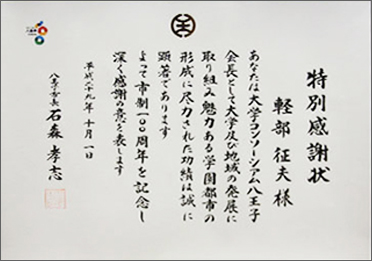 特別感謝状
軽部征夫様
あなたは大学コンソーシアム八王子
会長として大学及び地域の発展に
取り組み魅力ある学園都市の
形成に尽力された功績は誠に
顕著であります
よって市制100周年を記念し
深く感謝の意を表します
平成二十九年十月一日
八王子市長 石森孝志